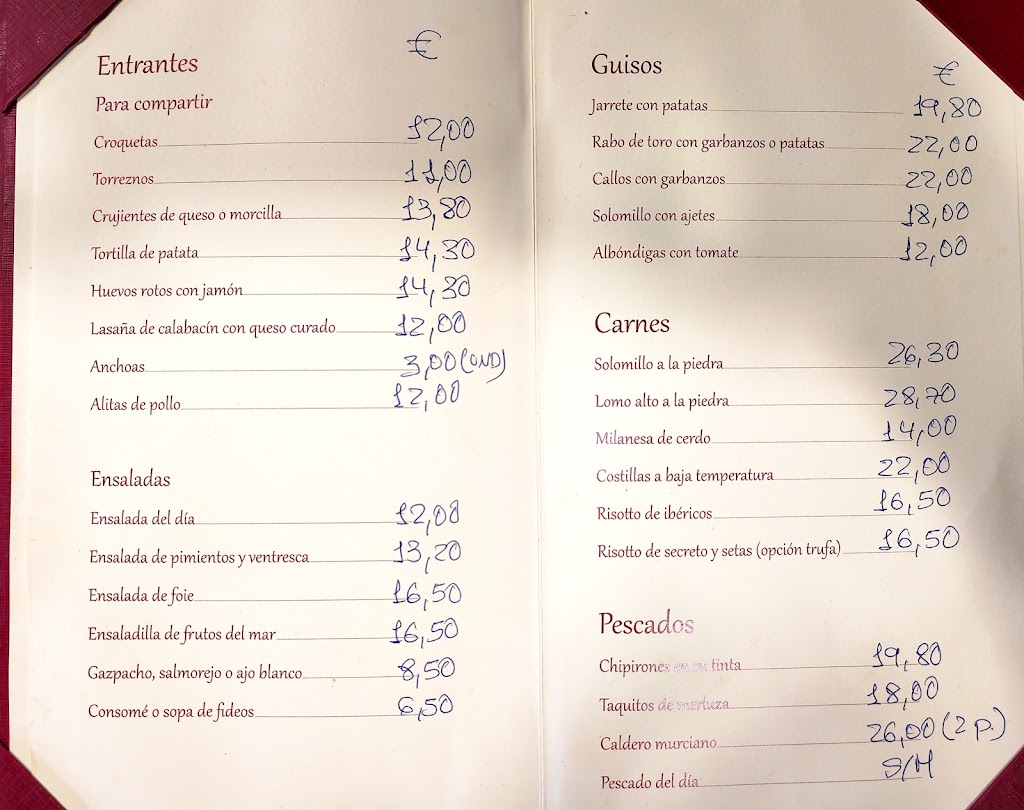 Entrantes €
Para compartir
Croquetas 12,00
Torreznos 11,00
Crujientes de queso o morcilla 13,80
Tortilla de patata 14,30
Huevos rotos con jamón 14,30
Lasaña de calabacín con queso curado 12,00
Anchoas 3,00 (UND)
Alitas de pollo 12,00
Ensaladas
Ensalada del día 12,00
Ensalada de pimientos y ventresca 13,20
Ensalada de foie 16,50
Ensaladilla de frutos del mar 16,50
Gazpacho, salmorejo o ajo blanco 8,50
Consomé o sopa de fideos 6,50
Guisos €
Jarrete con patatas 19,80
Rabo de toro con garbanzos o patatas 22,00
Callos con garbanzos 22,00
Solomillo con ajetes 18,00
Albóndigas con tomate 12,00
Carnes
Solomillo a la piedra 26,30
Lomo alto a la piedra 28,70
Milanesa de cerdo 14,00
Costillas a baja temperatura 22,00
Risotto de ibéricos 16,50
Risotto de secreto y setas (opción trufa) 16,50
Pescados
Chipirones en su tinta 19,80
Taquitos de merluza 18,00
Caldero murciano 26,00 (2 p.)
Pescado del día S/M